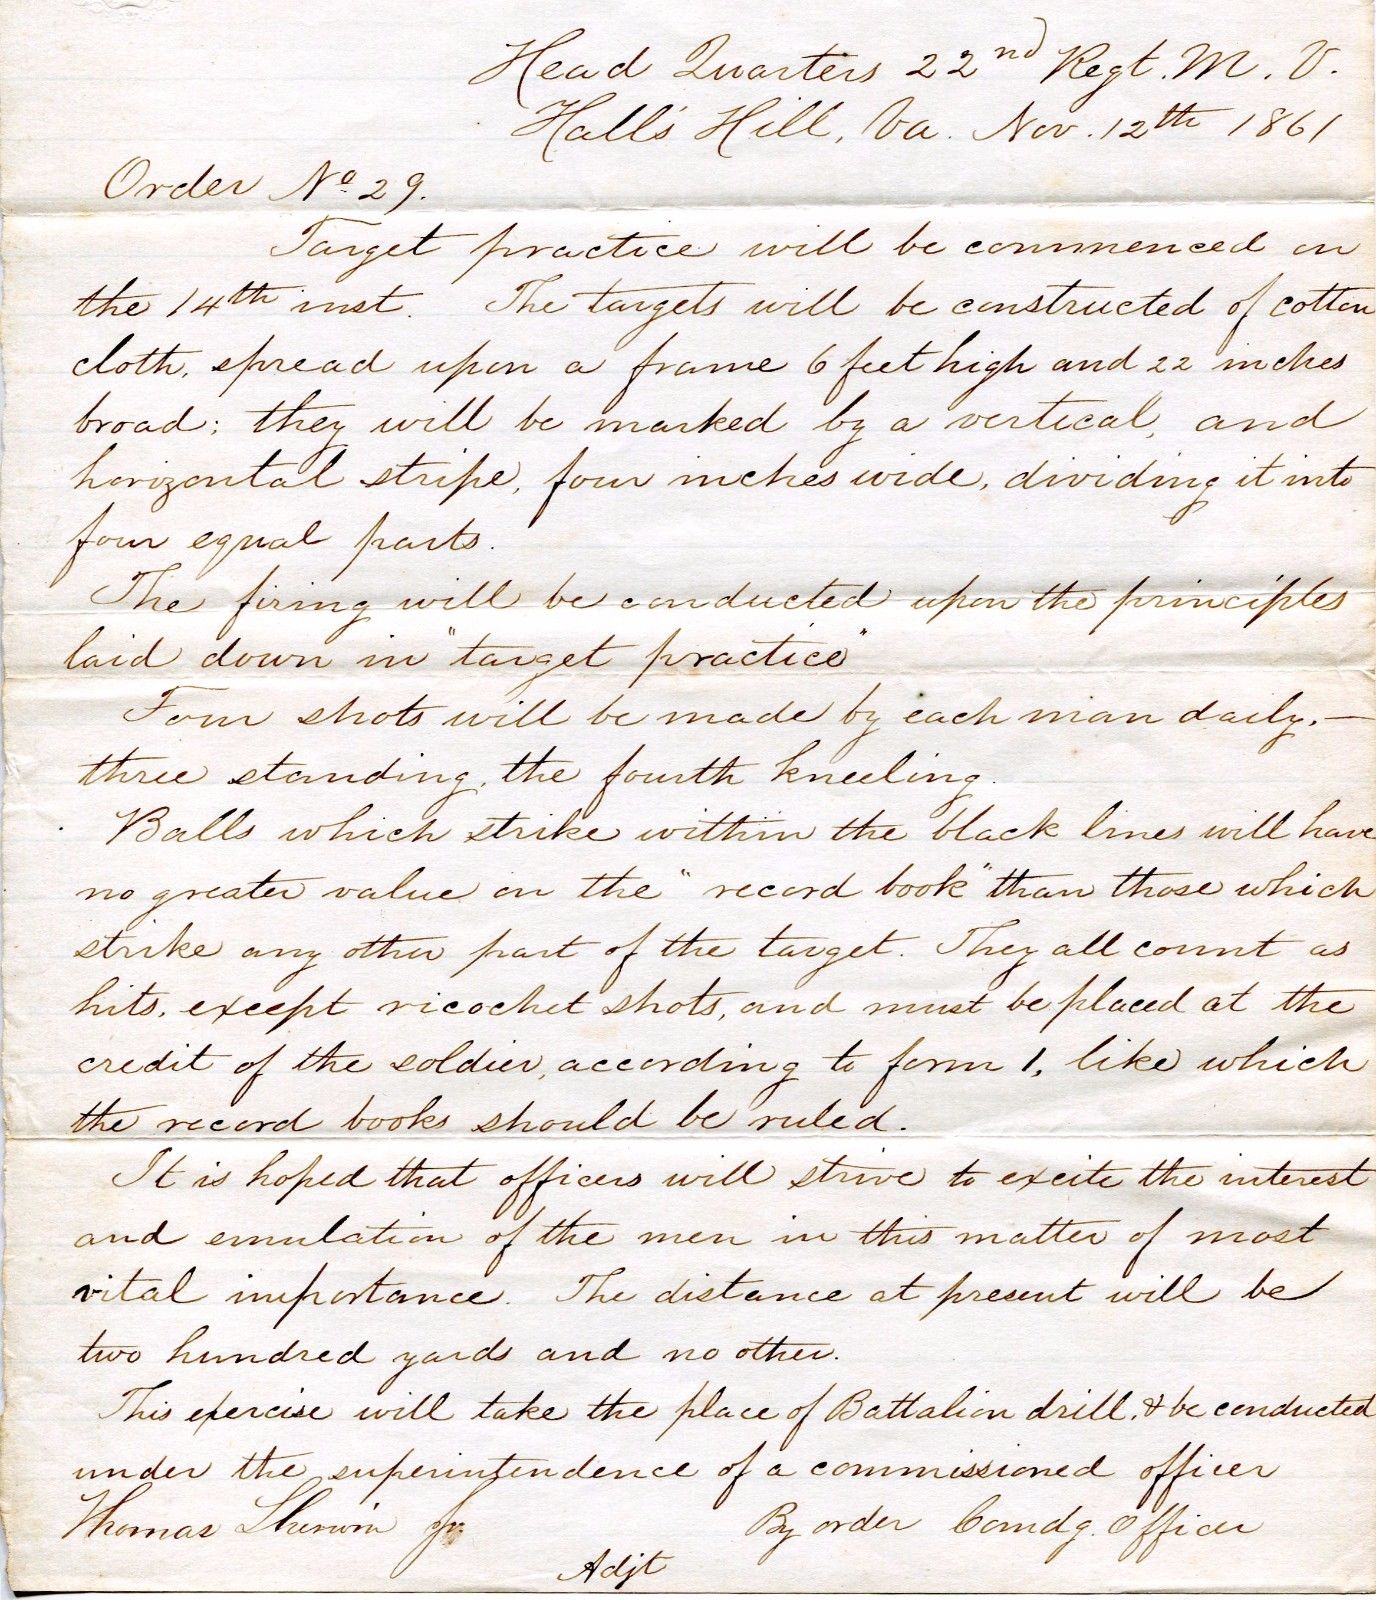 Head Quarters 22nd Regt. M. V.
Hall's Hill, Va. Nov. 12th 1861
Order No. 29.
Target practice will be commenced on
the 14th inst. The targets will be constructed of cotton
cloth, spread upon a frame 6 feet high and 22 inches
broad; they will be marked by a vertical, and
horizontal stripe, four inches wide, dividing it into
four equal parts.
The firing will be conducted upon the principles
laid down in "target practice"
Four shots will be made by each man daily, —
three standing, the fourth kneeling.
Balls which strike within the black lines will have
no greater value on the "record book" than those which
strike any other part of the target. They all count as
hits, except ricochet shots, and must be placed at the
credit of the soldier, according to form 1, like which
the record books should be ruled.
It is hoped that officers will strive to excite the interest
and emulation of the men in this matter of most
vital importance. The distance at present will be
two hundred yards and no other.
This exercise will take the place of Battalion drill, & be conducted
under the superintendence of a commissioned officer
Thomas Sherwin Jr. By order Comdg. Officer
Adjt